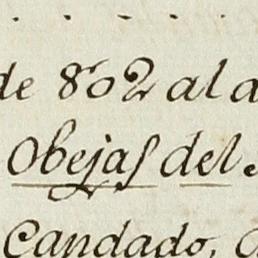 de 802 al a
Obejas del
Candado,